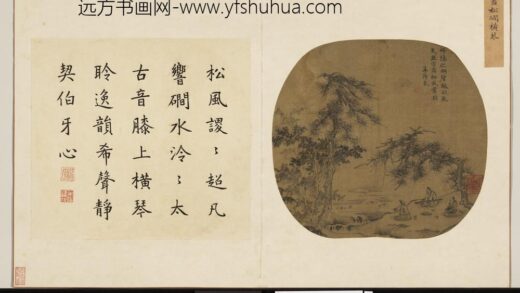 远方书画网-www.yfshuhua.com
松風謖〻超凡
響磵水泠〻太
古音膝上橫琴
聆逸韻希聲靜
契伯牙心